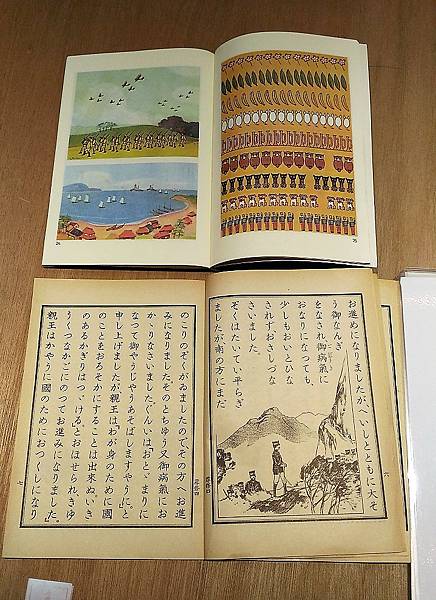 24
25
お進めになりましたが、へいしとともに大そ
う御なんぎ
をなされ、御病氣に
おなりになつても、
少しもおいとひな
されず、おさしづな
さいました。
ぞくはたいてい平らぎ
ましたが、南の方にまだ
六
尋修四
のこりのぞくがゐましたので、その方へお進
みになりました。そのとちゆう又御病氣にお
かゝりなさいました。ぐんいは「おとゞまりに
なつて御やうじやうあそばしますやうに。」と
申し上げましたが、親王は「わが身のために國
のことをおろそかにすることは出來ぬ。いき
のあるかぎりはつゞける。」とおほせられ、きゆ
うくつなかごにのつてお進みになりました。
親王はかやうに國のためにおつくしになり
尋修四
七